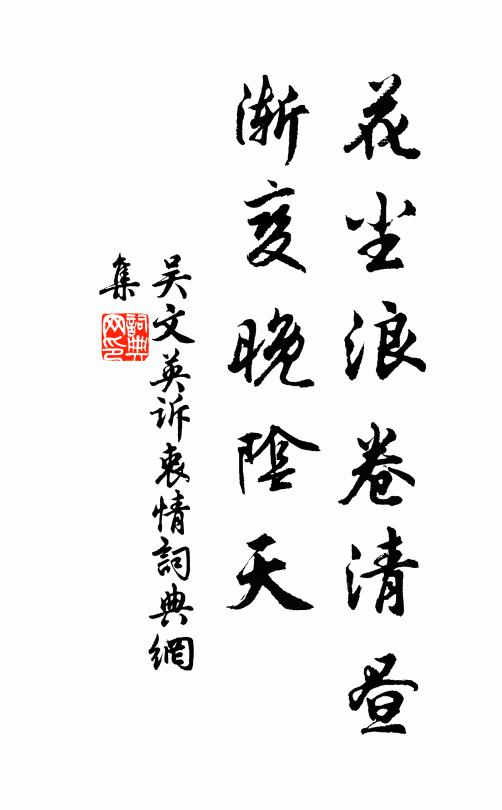 花尘浪卷清昼
渐变晚陰天
吴文英诉衷情詞典網
集
詞典
网印